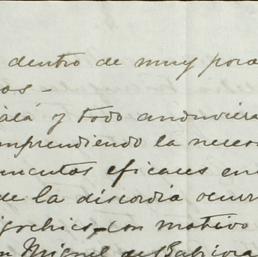 dentro de muy poco
os-
alá y todo anduviera
mprendiendo la neces
mentos eficaces en
de la discordia ocurr
gochics, con motivo
n Miguel de